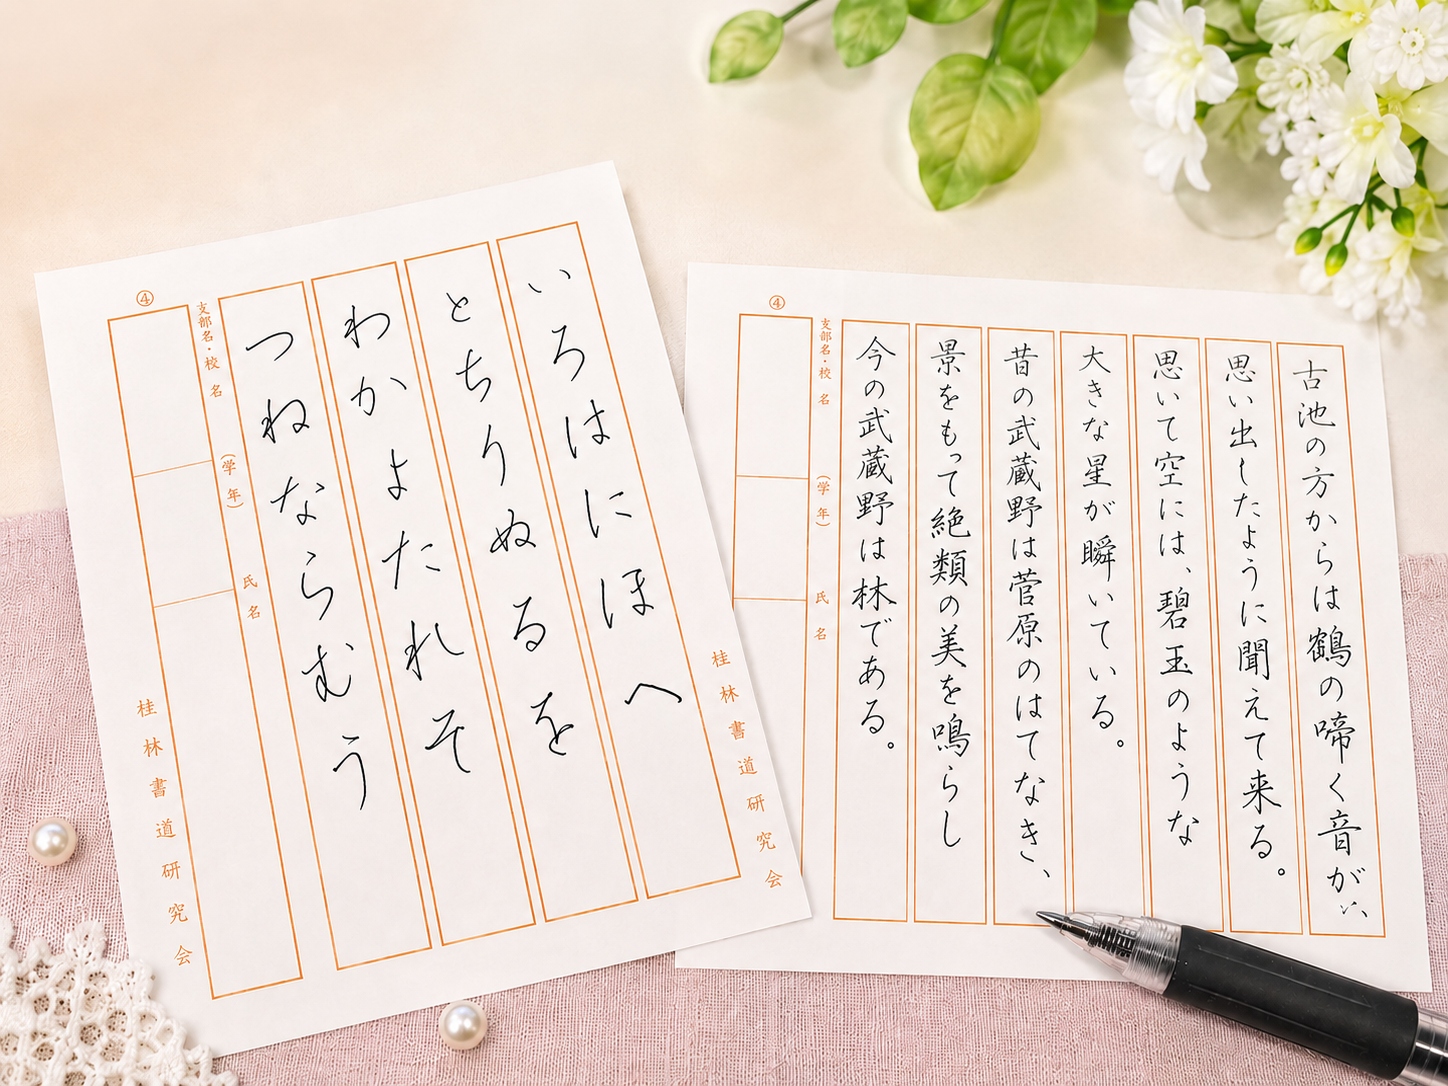 いろはにほへ
とちりぬるを
わかよたれそ
つねならむう
④
支部名・校名
(学年)
氏名
桂林書道研究会
桂林書道研究会
古池の方からは鶴の啼く音が、
思い出したように聞えて来る。
思いて空には、碧玉のような
大きな星が瞬いている。
昔の武蔵野は菅原のはてなき、
景をもって絶類の美を鳴らし
今の武蔵野は林である。
④
支部名・校名
(学年)
氏名